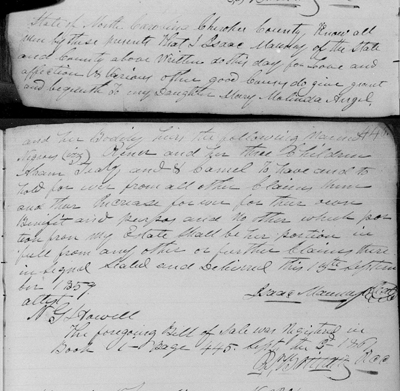 State of North Carolina Cherokee County. Know all
men by these presents that I Isaac Mauney of the State
and County above written do this day for Love and
affection & various other good Causes do give grant
and bequeath to my Daughter Mary Malinda Angel,
and her Bodily heirs the following named
Negroes and her three Children
and Daniel to have and to
hold for ever from all other Claims them
and ther Increase for ever for their own
Benefit and purpos and No other which por
tion from my Estate Shall be her portion in
full from any other or further Claims there
in Signed Sealed and Delivered this 15th Septem
ber 1859
Isaac Mauney
attest
N S Howell
The foregoing Bill of Sale was Registered in
Book Page 445. Sept the